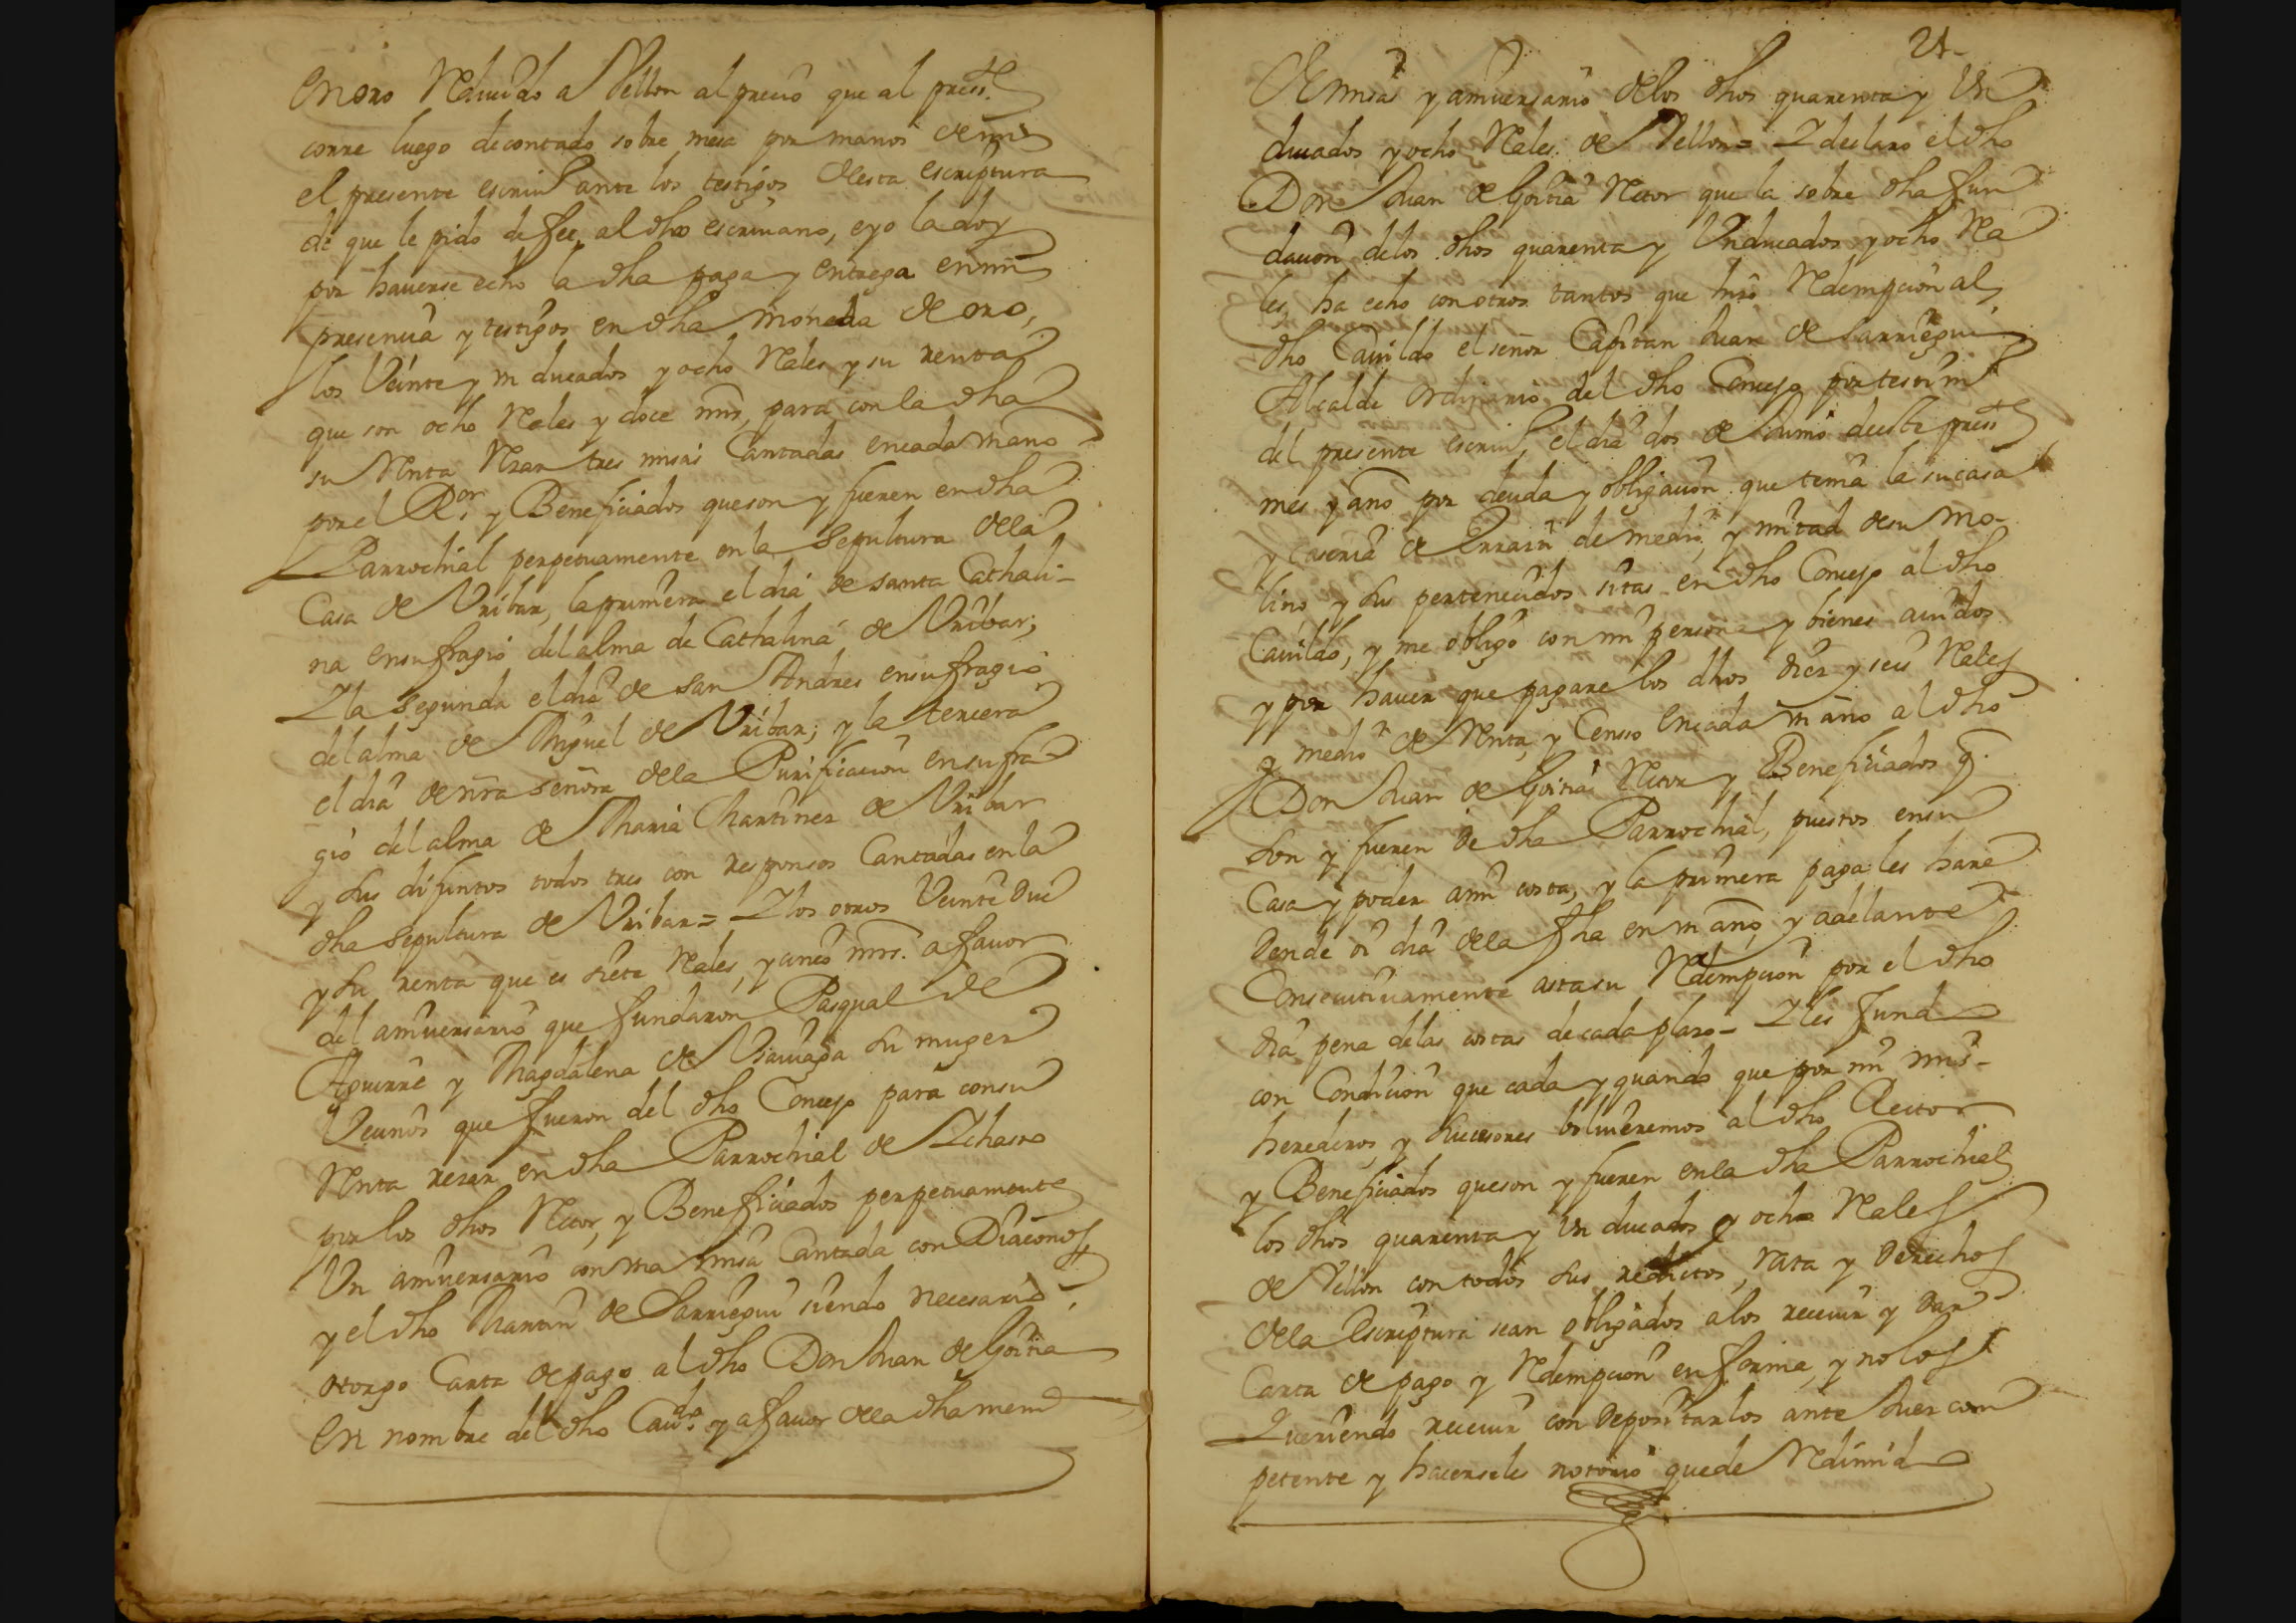 en oro Reducido a Vellon al precio que al presste
corre luego decontado sobre mesa por manos de mi
el presente escriuº ante los testigos desta escriptura
de que le pido de fee, al dho escriuano, e yo la doy
por hauerse echo la dha paga y entrega en mi
presencia y testigos en dha moneda de oro,
los Veinte y un ducados y ocho Reales y su renta
que son ocho Reales y doce mrs, para con la dha
su Renta Rezar tres misas Cantadas en cada un año
por el Ror. y Beneficiados que son y fueren en dha
Parrochial perpetuamente en la sepultura dela
Casa de Uribar, la primera el dia de santa Cathali-
na en sufragio del alma de Cathalina de Uribar;
Y la segunda el dia de san Andres en sufragio
del alma de Miguel de Uribar; y la tercera
el dia de nra señora dela Purificacion en sufra
gio del alma de Maria Martinez de Uribar
y sus difuntos todos tres con responsos Cantadas en la
dha sepultura de Uribar= Y los otros Veinte duc
y su renta que es siete Reales, y cinco mrs. a fauor
del aniuersario que fundaron Pasqual de
Aguirre y Magdalena de Usauiaga su muger
Vecinos que fueron del dho Concejo para con su
Renta rezar en dha Parrochial de Ichaso
por los dhos Retor, y Beneficiados perpetuamente
Un aniuersario con una misa Cantada con Diaconos
y el dho Martin de Sarriegui siendo necesario
otorgo Carta de pago al dho Don Juan de Goitia
en nombre del dho Caudo. y a fauor dela dha mem
21
de misas y aniuersario delos dhos quarenta y Un
ducados y ocho Reales de Vellon= Y declaro el dho
Don Juan de Goitia Retor que la sobre dha fun
dacion delos dhos quarenta y Un ducados y ocho Rea
les, ha echo con otros tantos que hizo Redempcion al
dho Cauildo el señor Capitan Juan de Sarriegui
Alcalde Ordinario del dho Concejo por testimº
del presente escriuº, el dia dos de Junio deeste presste
mes y año por deuda y obligacion que tenia la su casa
y caseria de de medio, y mitad de su mo-
lino y sus pertenecidos sitas en dho Concejo al dho
Cauildo, y me obligo con mi persona y bienes auidos
y por hauer que pagare los dhos diez y seis Reales
y medio de Renta, y Censso en cada un año al dho
Don Juan de Goitia Retor y Beneficiados q.
son y fueren de dha Parrochial, puestos en su
Casa y poder a mi costa, y la primera paga les hare
Dende oi dia dela fha en un año, y adelante
Consecutiuamente asta su Redempcion por el dho
dia pena delas costas de cada plazo= Y les fund
con Condicion que cada y quando que por mi mis-
herederos, y sucesores boluieremos al dho Rector
y Beneficiados que son y fueren en la dha Parrochial
los dhos quarenta y Un ducados y ocho Reales
de Vellon con todos sus redictos, rata y Derechos
dela Escriptura sean obligados a los receuir y dar
Carta de pago y Redempcion en forma, y no los
Queriendo receuir con depositarlos ante Juez com
petente y hacerseles notorio quede Redimid